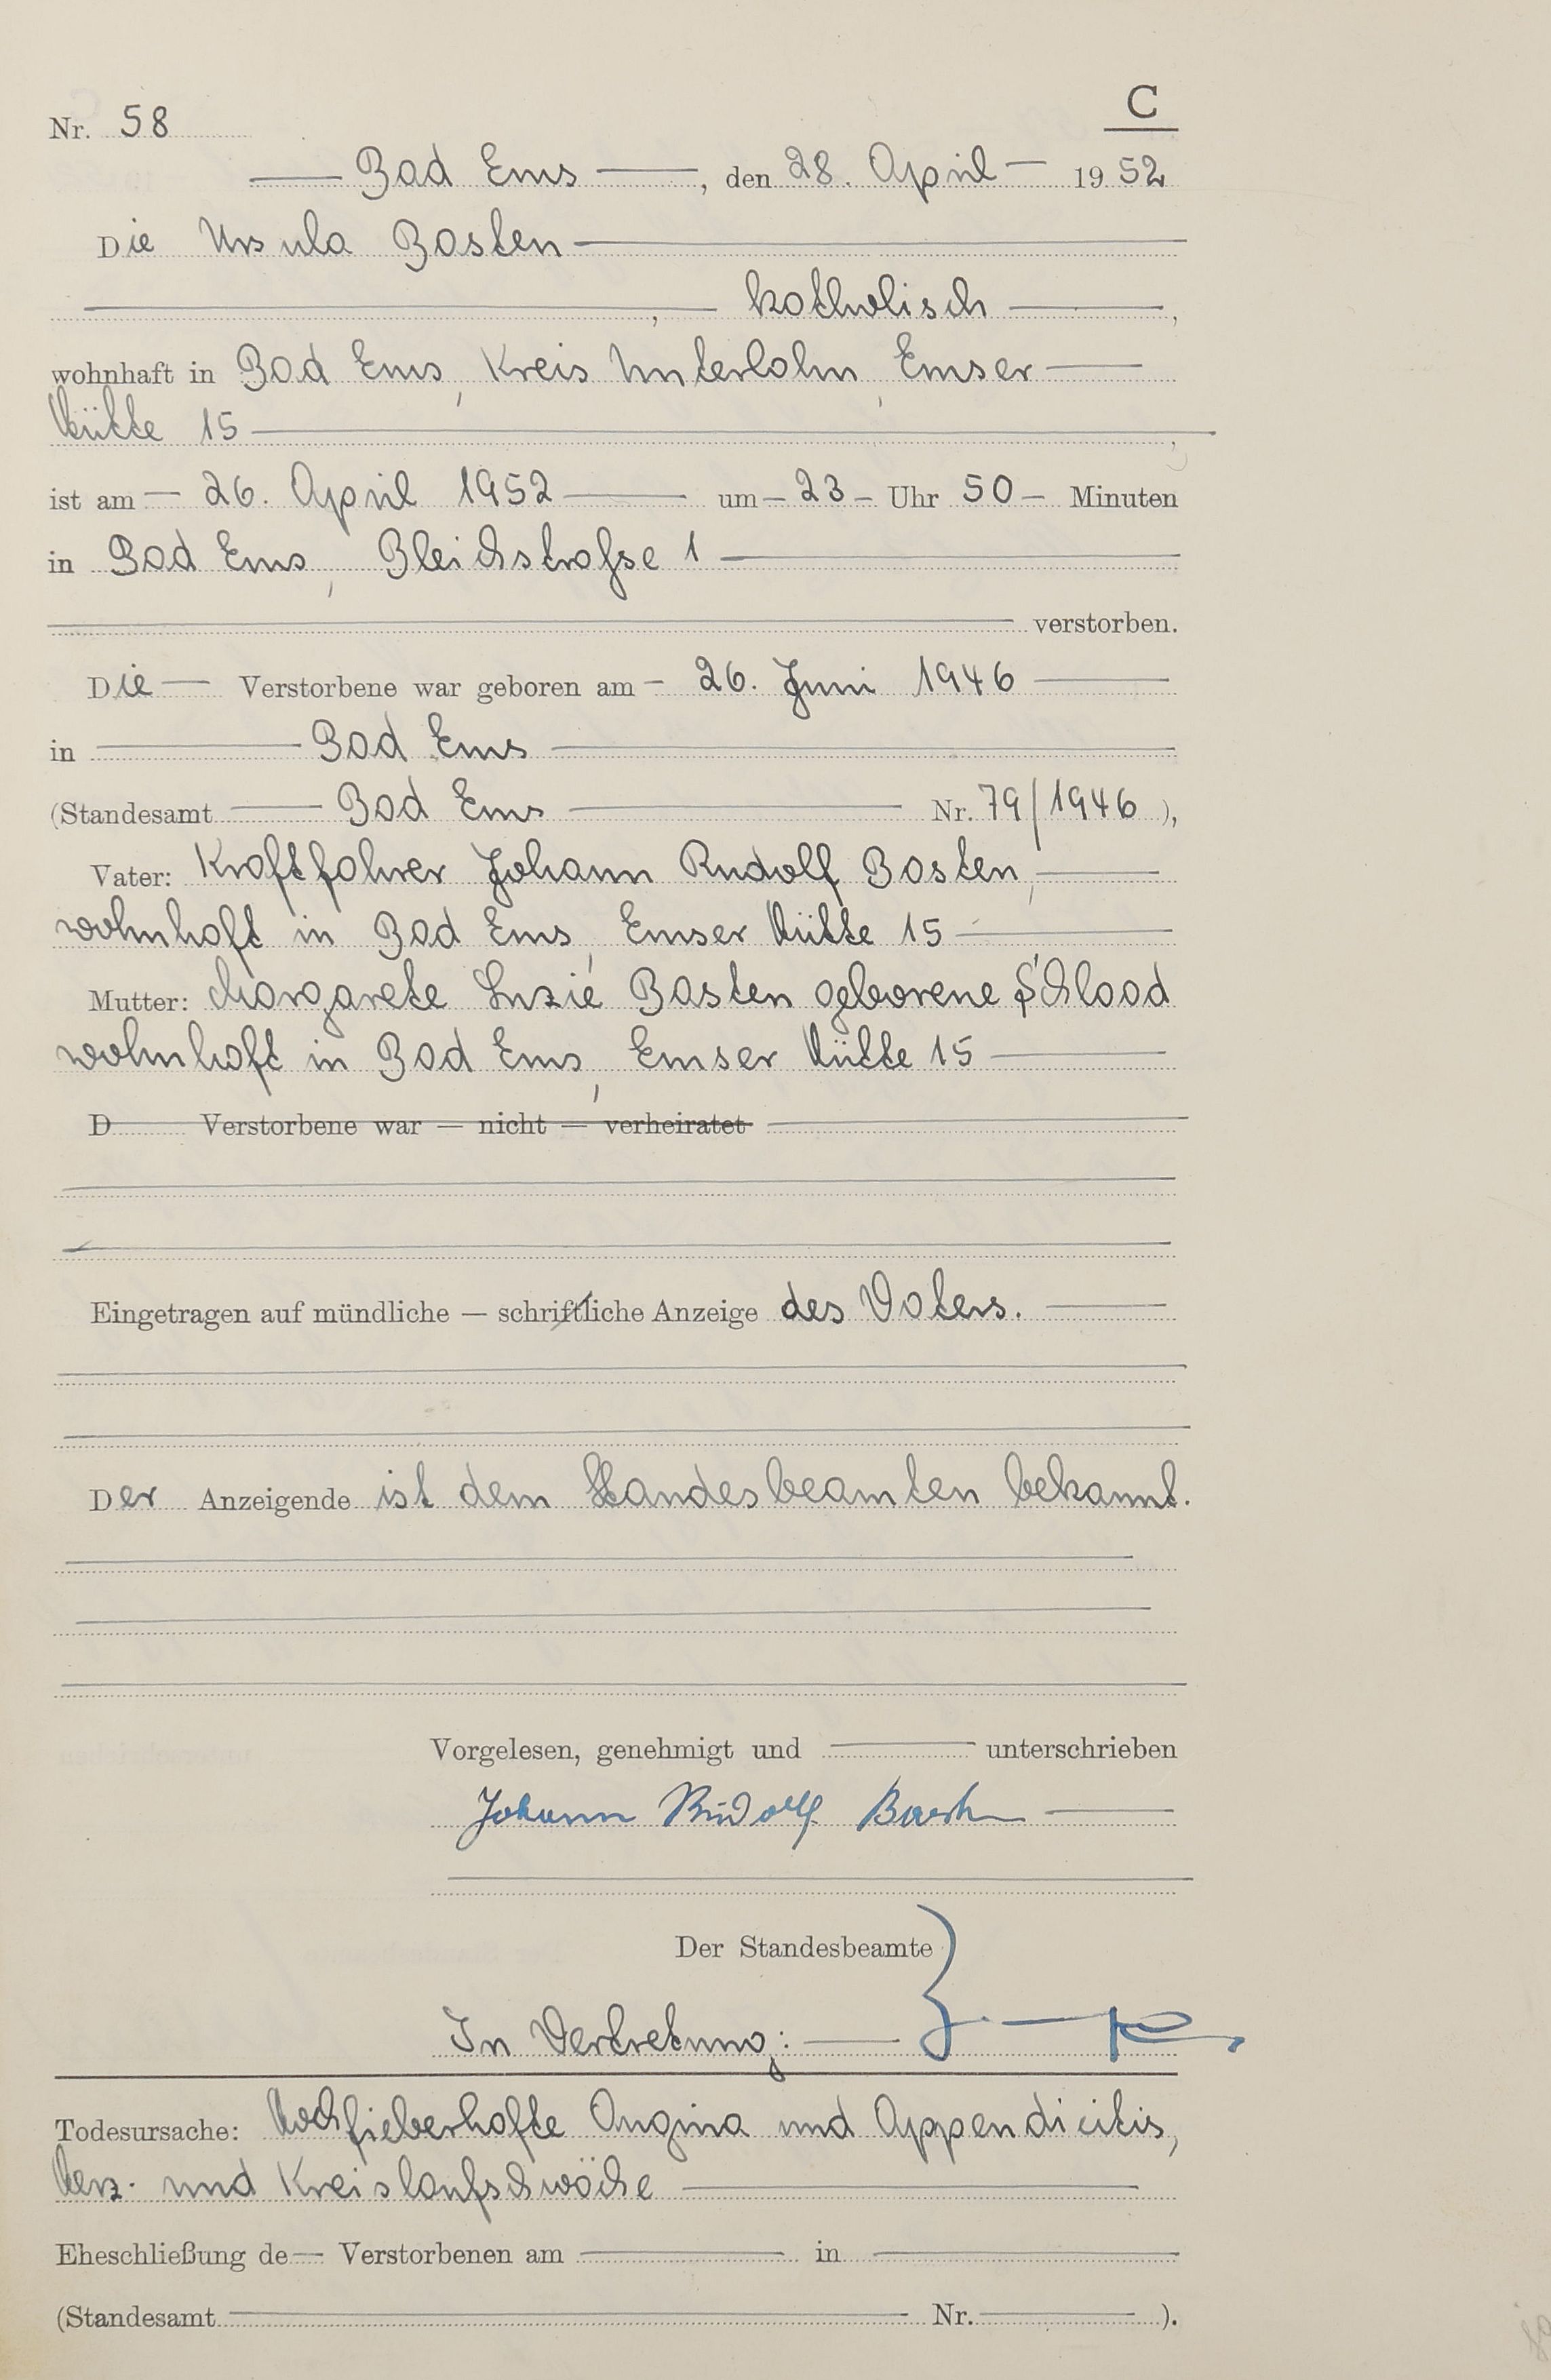 C
Nr. 58
Bad Ems, den 28. April 1952
Die Ursula Basten
, katholisch,
wohnhaft in Bad Ems, Kreis Unterlahn, Emser
Hütte 15,
ist am 26. April 1952 um 23 Uhr 50 Minuten
in Bad Ems, Bleichstraße 1
verstorben.
Die Verstorbene war geboren am 26. Juni 1946
in Bad Ems
(Standesamt Bad Ems Nr. 79/1946),
Vater: Kraftfahrer Johann Rudolf Basten,
wohnhaft in Bad Ems, Emser Hütte 15
Mutter: Margarete Luzie Basten geborene Schlaad
wohnhaft in Bad Ems, Emser Hütte 15
D Verstorbene war — nicht — verheiratet
Eingetragen auf mündliche — schriftliche Anzeige des Vaters.
Der Anzeigende ist dem Standesbeamten bekannt.
Vorgelesen, genehmigt und unterschrieben
Johann Rudolf Basten
Der Standesbeamte
In Vertretung:
Todesursache: Hochfieberhafte Angina und Appendicitis,
Herz- und Kreislaufschwäche
Eheschließung de Verstorbenen am in
(Standesamt Nr. ).